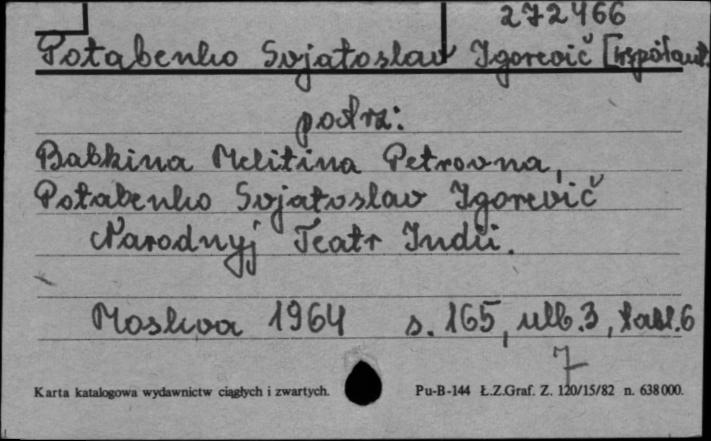 272466
Potabenko Svjatoslav Igorevič [współaut.
podrz:
Babkina Melitina Petrovna,
Potabenko Svjatoslav Igorevič
Narodnyj Teatr Indii.
Moskva 1964 s. 165, ulb. 3, tabl. 6
7
Karta katalogowa wydawnictw ciągłych i zwartych. Pu-B-144 Ł.Z.Graf. Z. 120/15/82 n. 638000.